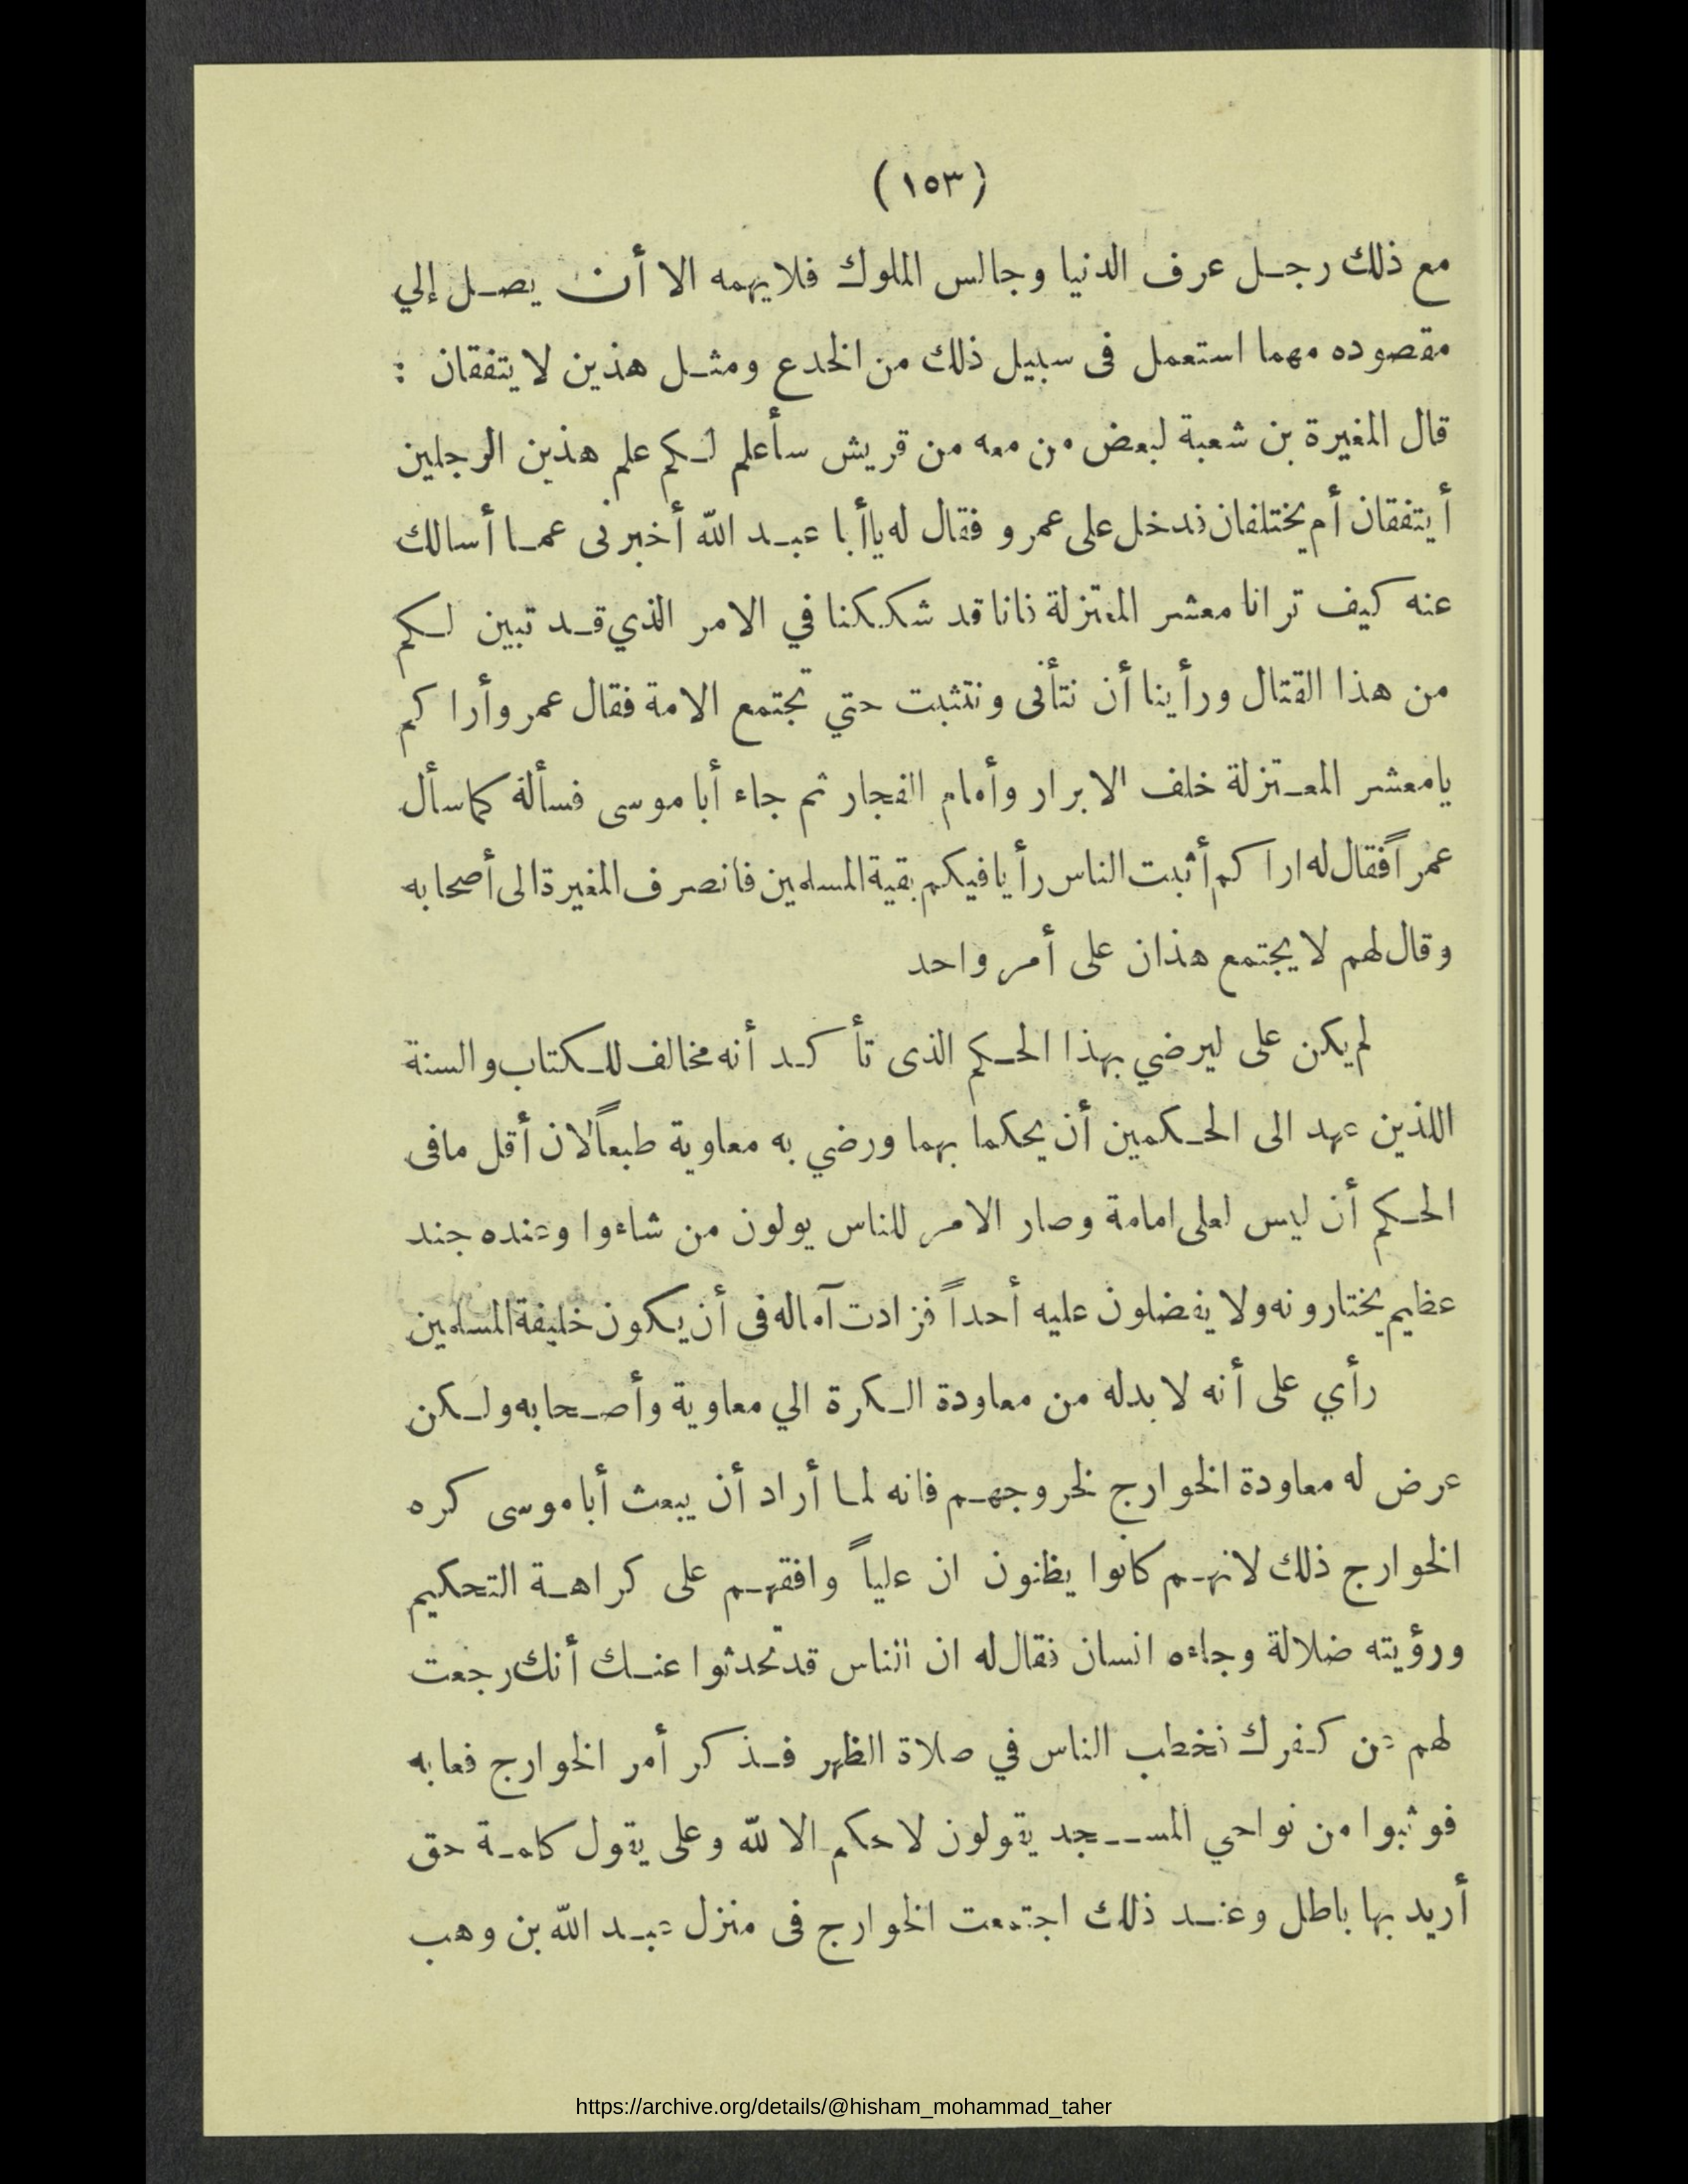 (١٥٣)
مع ذلك رجل عرف الدنيا وجالس الملوك فلا يهمه الا أن يصل إلي
مقصوده مهما استعمل فى سبيل ذلك من الخدع ومثل هذين لا يتفقان :
قال المغيرة بن شعبة لبعض من معه من قريش سأعلم لكم علم هذين الرجلين
أيتفقان أم يختلفان فدخل على عمرو فقال له ياأبا عبد الله أخبرنى عما أسالك
عنه كيف ترانا معشر المعتزلة فانا قد شككنا في الامر الذي قد تبين لكم
من هذا القتال ورأينا أن نتأنى ونتثبت حتي تجتمع الامة فقال عمرو أراكم
يامعشر المعتزلة خلف الابرار وأمام الفجار ثم جاء أبا موسى فسألة كما سأل
عمراً فقال له اراكم أثبت الناس رأيا فيكم بقية المسلمين فانصرف المغيرة الى أصحابه
وقال لهم لا يجتمع هذان على أمر واحد
لم يكن على ليرضي بهذا الحكم الذى تأكد أنه مخالف للكتاب والسنة
اللذين عهد الى الحكمين أن يحكما بهما ورضي به معاوية طبعاً لان أقل مافى
الحكم أن ليس لعلى امامة وصار الامر للناس يولون من شاءوا وعنده جند
عظيم يختارونه ولا يفضلون عليه أحداً فزادت آماله فى أن يكون خليفة المسلمين
رأي على أنه لا بدله من معاودة الكرة الي معاوية وأصحابه ولكن
عرض له معاودة الخوارج لخروجهم فانه لما أراد أن يبعث أبا موسى كره
الخوارج ذلك لانهم كانوا يظنون ان علياً وافقهم على كراهة التحكيم
ورؤيته ضلالة وجاءه انسان فقال له ان الناس قد تحدثوا عنك أنك رجعت
لهم عن كفرك فخطب الناس في صلاة الظهر فذكر أمر الخوارج فعابه
فوثبوا من نواحي المسجد يقولون لا حكم الا لله وعلى يقول كلمة حق
أريد بها باطل وعند ذلك اجتمعت الخوارج فى منزل عبد الله بن وهب
https://archive.org/details/@hisham_mohammad_taher